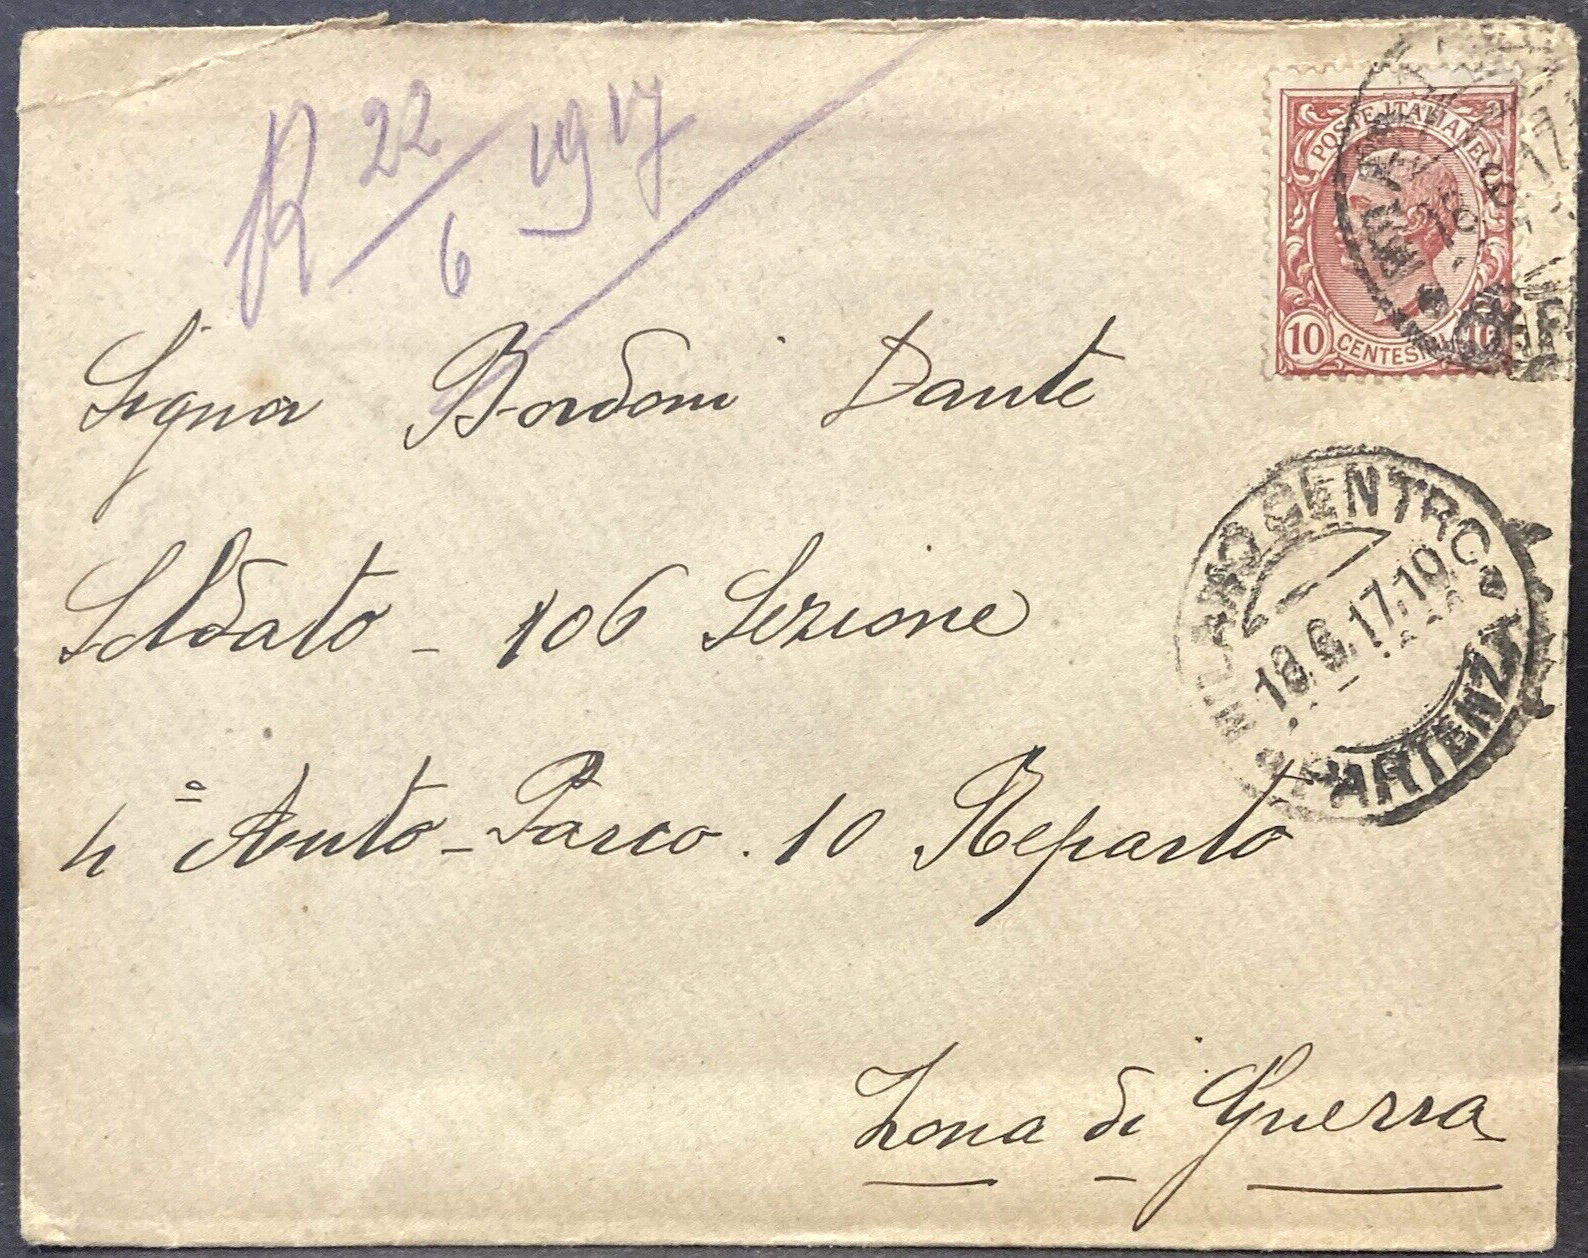 R 22/6 1917
POSTE ITALIANE
10 CENTESIMI 10
Signor Bordoni Dante
MILANO CENTRO
18.6.17.10
PARTENZA
Soldato - 106 Sezione
4° Auto-Parco . 10 Reparto
Zona di Guerra